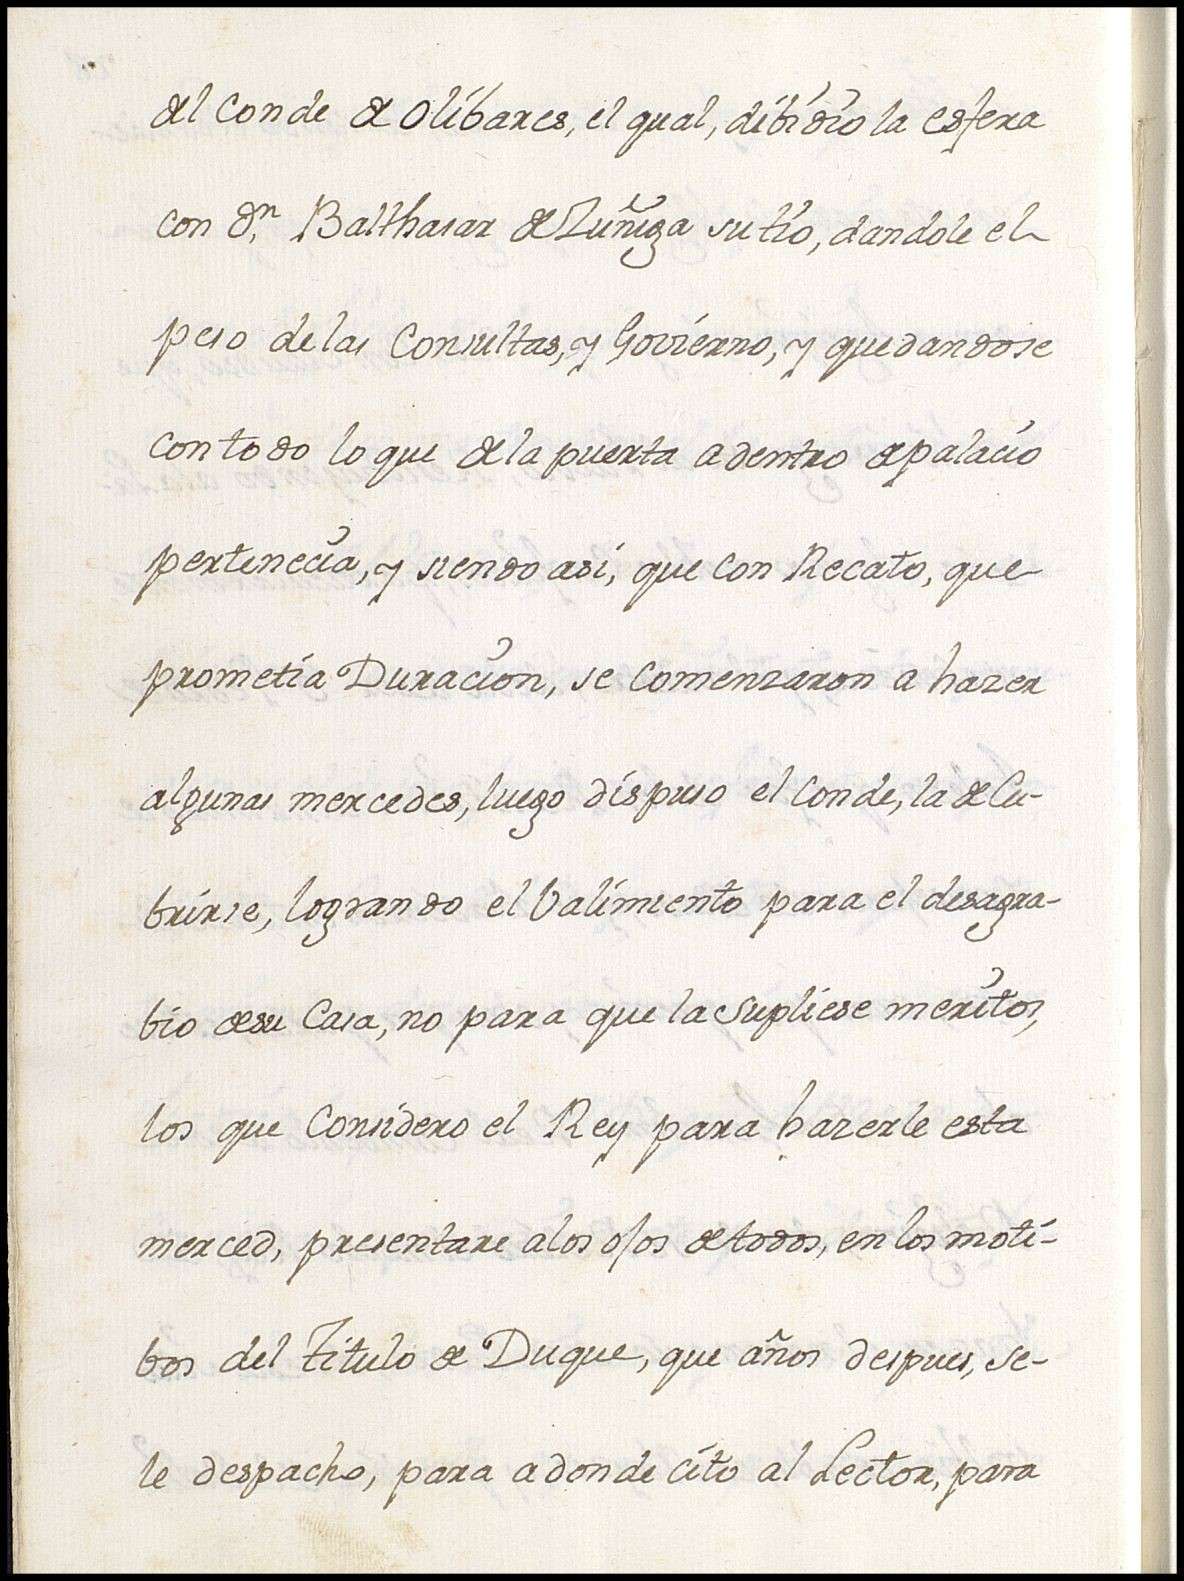 del Conde de Olibares, el qual, dibidio la esfera
con Dn. Balthasar de Zuñiga su tio, dandole el
peso delas Consultas, y Govierno, y quedandose
con todo lo que de la puerta adentro de palacio
pertenecia, y siendo asi, que con Recato, que
prometia Duracion, se comenzaron a hazer
algunas mercedes, luego dispuso el Conde, la de Cu-
brirse, logrando el Valimiento para el desagra-
bio de su Casa, no para que la supliese meritos,
los que Considero el Rey para hazerle esta
merced, presentare alos ojos de todos, en los moti-
bos del Titulo de Duque, que años despues, se-
le despacho, para adonde cito al Lector, para